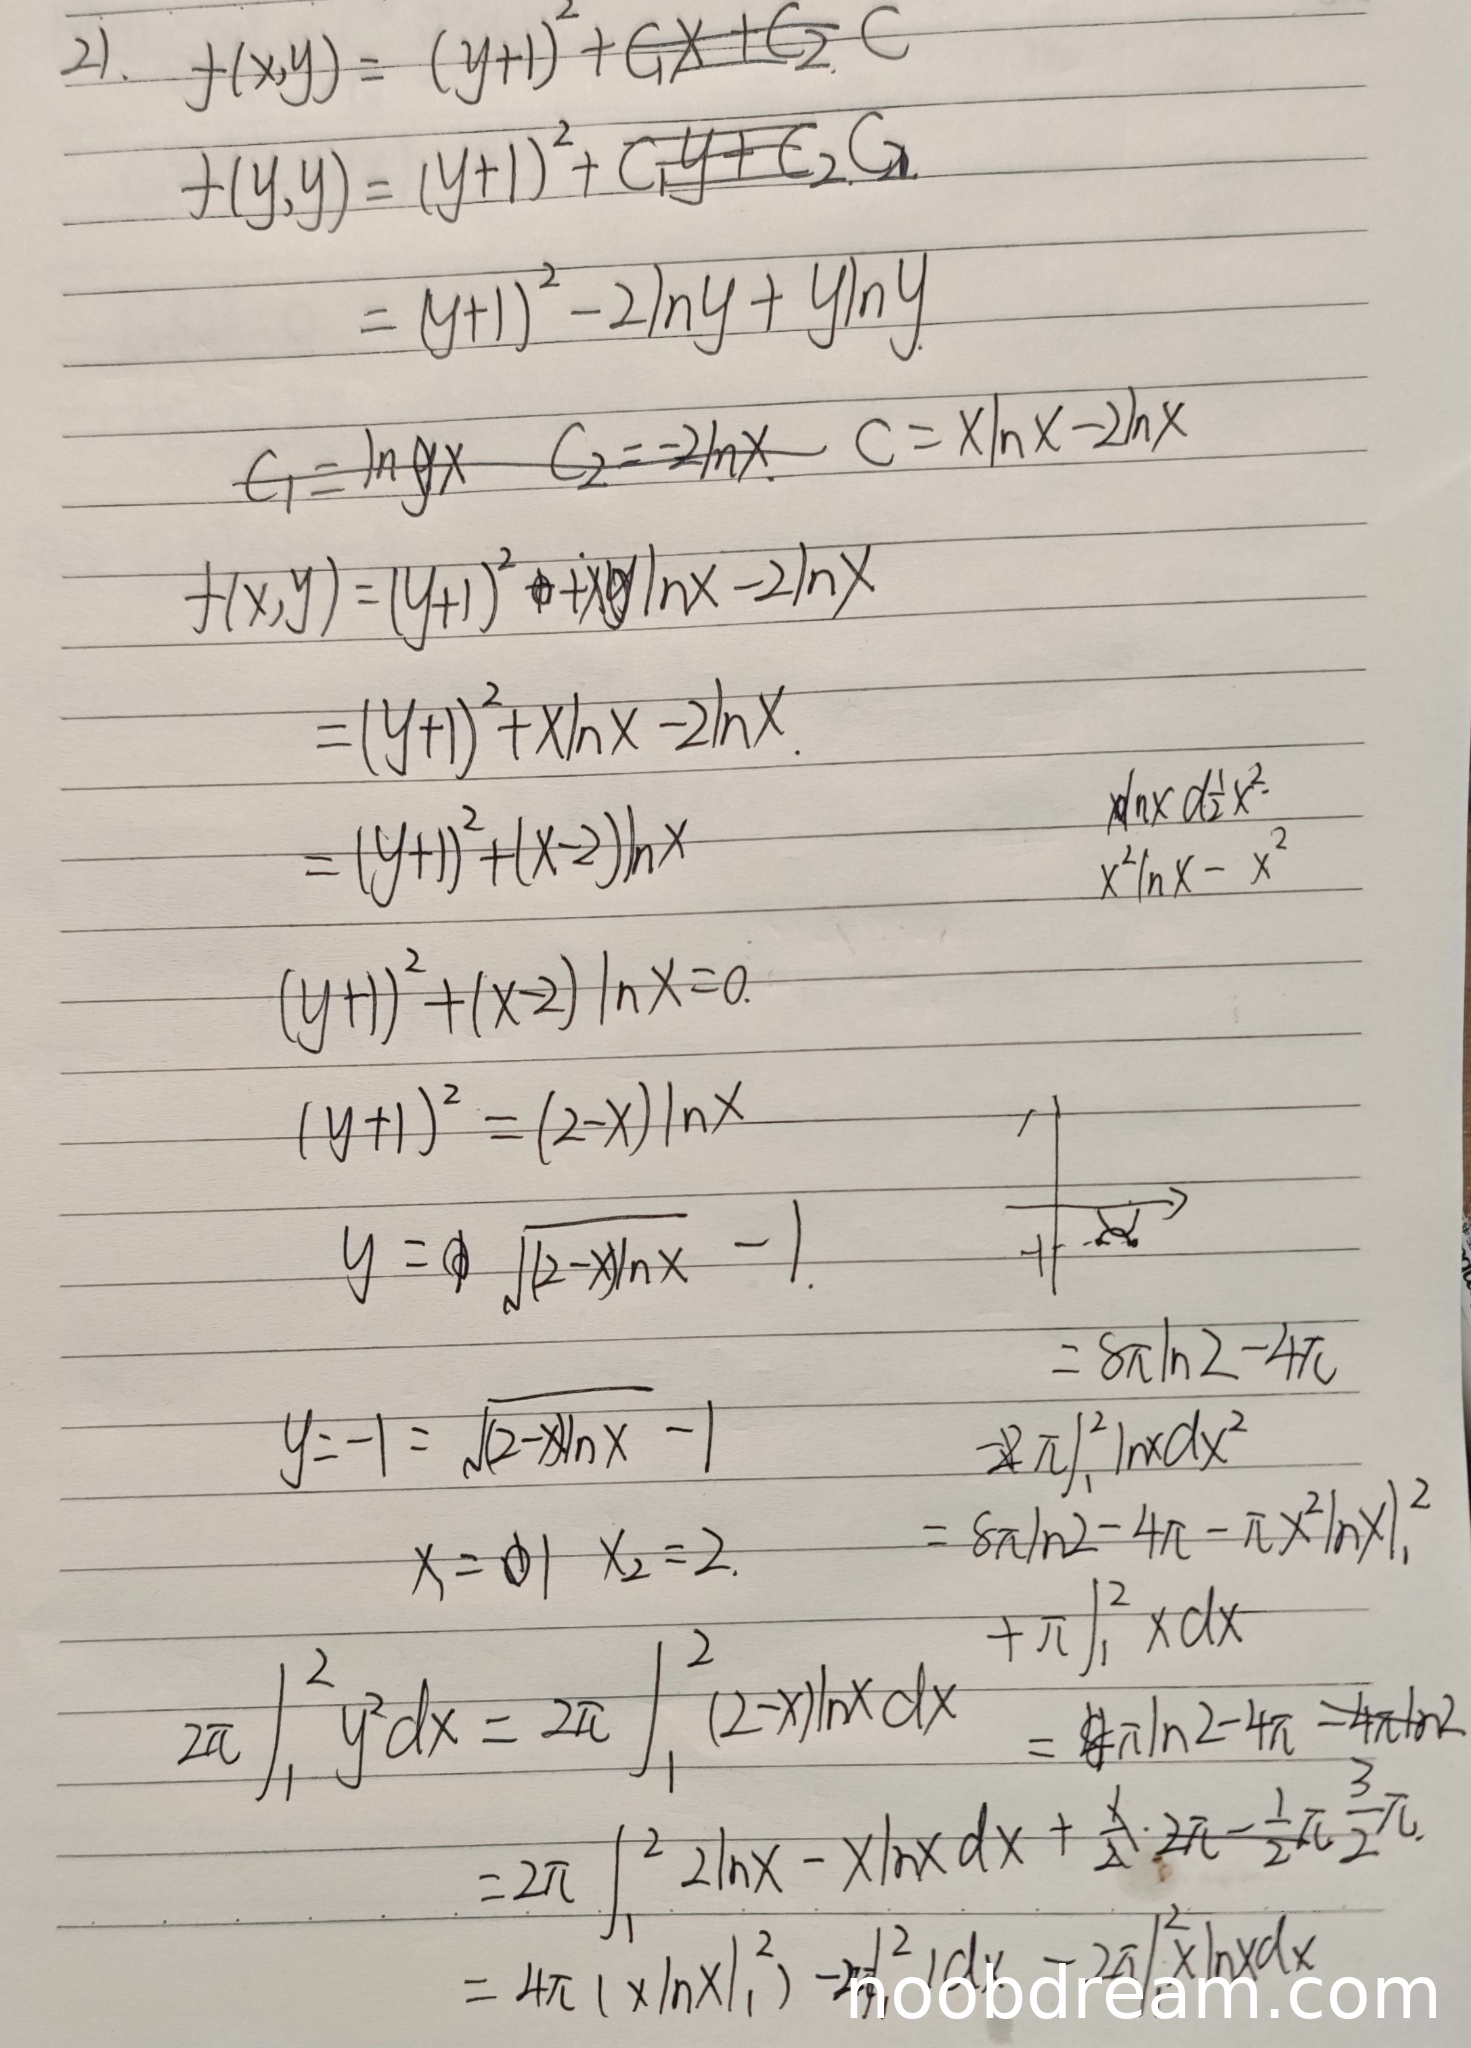 2). f(x,y) = (y+1)² + C₁x + C₂. C
f(y,y) = (y+1)² + C₁y + C₂. C
= (y+1)² - 2lny + ylny.
C₁ = lnx C₂ = -2lnx. C = xlnx - 2lnx
f(x,y) = (y+1)² + x lnx - 2lnx
= (y+1)² + xlnx - 2lnx.
= (y+1)² + (x-2)lnx
lnx d½x²
x²lnx - x²
(y+1)² + (x-2) lnx = 0.
(y+1)² = (2-x) lnx
y = √(2-x)lnx - 1.
-1
y = -1 = √(2-x)lnx - 1
x₁ = 1 x₂ = 2.
2π∫₁² y²dx = 2π∫₁² (2-x)lnxdx
= 2π∫₁² 2lnx - xlnxdx
= 4π(xlnx|₁²) - ∫₁² 1dx - 2π∫₁² xlnxdx
= 8πln2 - 4π
- π∫₁² lnxdx²
= 8πln2 - 4π - πx²lnx|₁²
+ π∫₁² xdx
= 4πln2 - 4π - 4πln2
+ ½·2π - ½π 3/2π.
noobdream.com